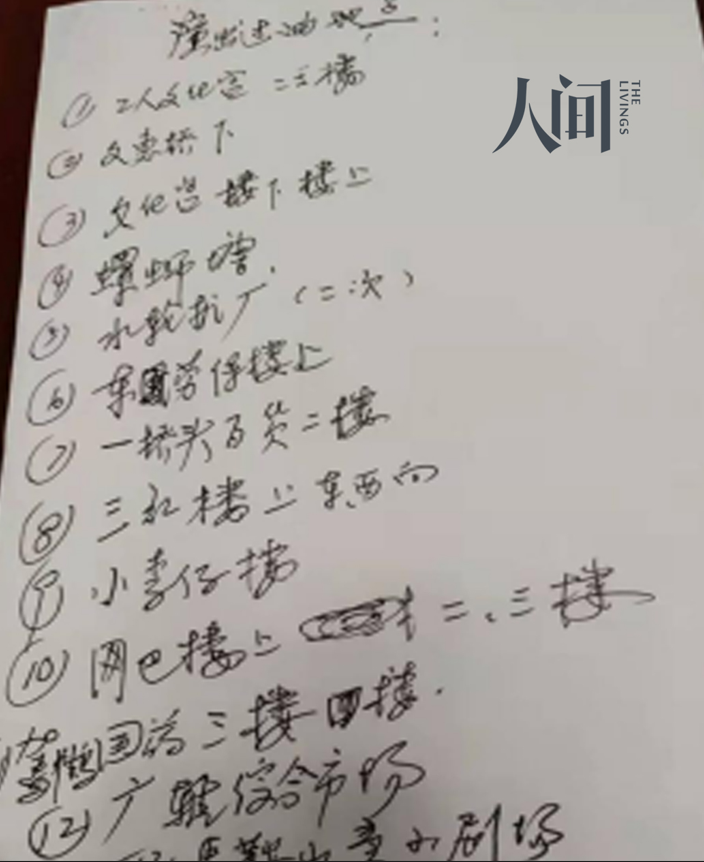 演出过的地点：
人间
THE LIVINGS
① 工人文化宫 二三楼
② 文惠桥下
③ 文化宫 楼下 楼上
④ 螺蛳塔.
⑤ 水轮机厂（二次）
⑥ 东国劳保楼上
⑦ 一桥头百货二楼
⑧ 三和楼上东西向
⑨ 小李仔楼
⑩ 网巴楼上 二、三楼
三楼 四楼.
⑫ 广雅综合市场
小剧场